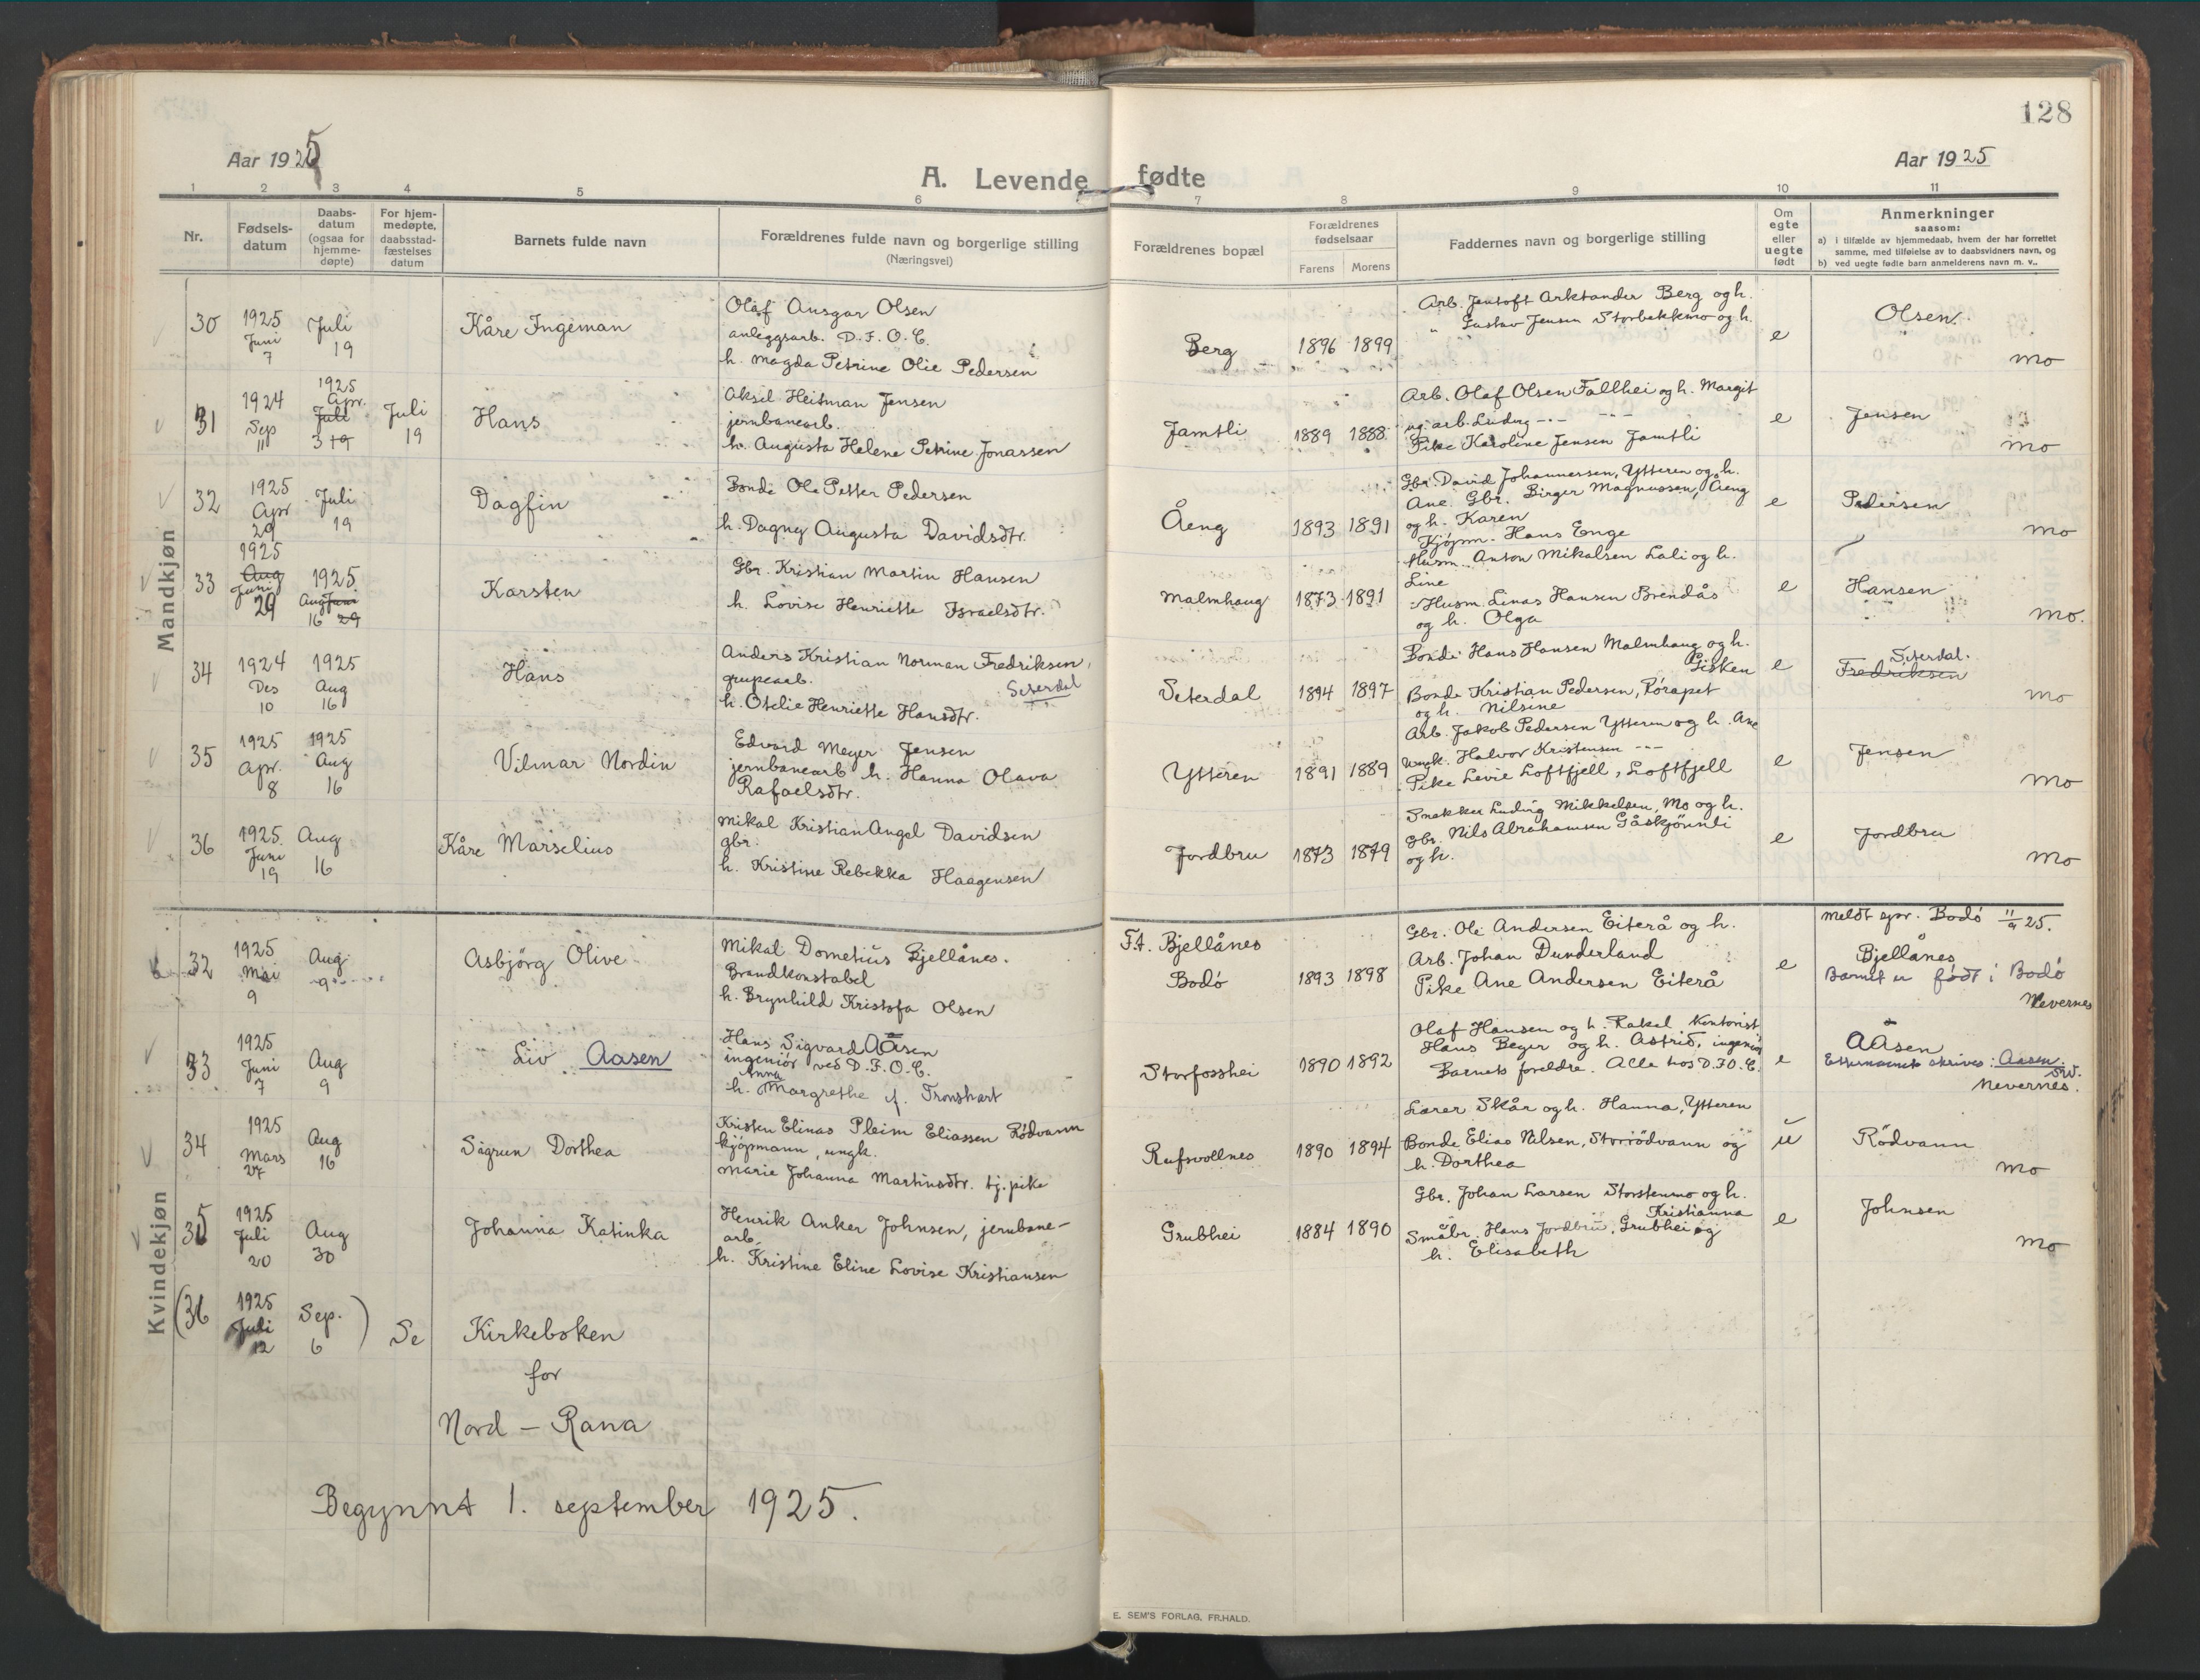 128
Aar 1925
Aar 1925
A. Levende fødte
1 2 3 4 5 6 7 8 9 10 11
Nr.
Fødsels-
datum
Daabs-
datum
(ogsaa for
hjemme-
døpte)
For hjem-
medøpte,
daabsstad-
fæstelses
datum
Barnets fulde navn
Forældrenes fulde navn og borgerlige stilling
(Næringsvei)
Forældrenes bopæl
Forældrenes
fødselsaar
Farens Morens
Faddernes navn og borgerlige stilling
Om
egte
eller
uegte
født
Anmerkninger
saasom:
a) i tilfælde av hjemmedaab, hvem der har forrettet
samme, med tilføielse av to daabsvidners navn, og
b) ved uegte fødte barn anmelderens navn m. v..
Mandkjøn
30
1925
Juni
7
Juli
19
Kåre Ingeman
Olaf Ansgar Olsen
anleggsarb. D.F.O.C.
h. Magda Petrine Olie Pedersen
Berg
1896 1899
Arb. Jentoft Arktander Berg og h.
" Gustav Jensen Storbekkmo og h.
e
Olsen.
Mo
31
1924
Sep
11
1925
Apr.
Juli
3 19
Juli
19
Hans
Aksel Heitman Jensen
jernbanearb.
h. Augusta Helene Petrine Jonassen
Jamtli
1889 1888
Arb. Olaf Olsen Fallhei og h. Margit
og arb. Ludvig -"- -"-
Pike Karoline Jensen Jamtli
e
Jensen
Mo
32
1925
Apr
29
Juli
19
Dagfin
Bonde Ole Petter Pedersen
h. Dagny Augusta Davidsdtr.
Åeng
1893 1891
Gbr. David Johannersen, Ytteren og h.
Ane Gbr. Birger Magnussen, Åeng
og h. Karen
Kjøpm. Hans Enge
e
Pedersen
Mo
33
1925
Aug
Juni
29
1925
Aug Juni
16 29
Karsten
Gbr. Kristian Martin Hansen
h. Lovise Henriette Israelsdtr.
Malmhaug
1873 1891
Husm. Anton Mikalsen Lali og h.
Line
Husm. Linas Hansen Brendås
og h. Olga
e
Hansen
Mo.
34
1924
Des
10
1925
Aug
16
Hans
Anders Kristian Norman Fredriksen,
grupearb. Seterdal
h. Otelie Henriette Hansdtr.
Seterdal
1894 1897
Bonde Hans Hansen Malmhaug og h.
Gisken
Bonde Kristian Pedersen, Rórapet
og h. Nilsine
e
Seterdal.
Fredriksen
Mo
35
1925
Apr.
8
1925
Aug
16
Vilmar Nordin
Edvard Meyer Jensen
jernbanearb h. Hanna Olava
Rafaelsdtr.
Ytteren
1891 1889
Arb. Jakob Pedersen Ytteren og h. Ane
Ungk. Halvor Kristensen -"-
Pike Levie Loftfjell, Loftfjell
e
Jensen
Mo
36
1925.
Juni
19
Aug
16
Kåre Marselius
Mikal Kristian Angel Davidsen
gbr.
h. Kristine Rebekka Haagensen
Jordbru
1873 1879
Snekker Ludvig Mikkelsen, Mo og h.
Gbr. Nils Abrahamsen Gåskjønnli
og h.
e
Jordbru
Mo
Kvindekjøn
32
1925
Mai
9
Aug
9
Asbjörg Olive
Mikal Dometius Bjellånes.
Brandkonstabel
h. Brynhild Kristofa Olsen
F.t. Bjellånes
Bodó
1893 1898
Gbr. Ole Andersen Eiterå og h.
Arb. Johan Dunderland
Pike Ane Andersen Eiterå
e
Meldt spr. Bodó 11/9 25.
Bjellånes
Barnet er født i Bodó
Nevernes
33
1925
Juni
7
Aug
9
Liv Aasen
Hans Sigvard Aasen
ingeniör ved D.F.O.C.
Anna
h. Margrethe f. Tronshart
Storfosshei
1890 1892
Olaf Hansen og h. Rakel, Kontorist
Hans Beyer og h. Astrid, ingeniör
Barnets foreldre. Alle hos D.F.O.C.
e
Aasen
Etternavnet skrives: Aasen.
Nevernes.
34
1925
Mars
27
Aug
16
Sigrun Dorthea
Kristen Elinas Pleim Eliassen Rödvann
kjópmann, ungk.
Marie Johanna Martinsdtr. tj. pike
Rufsvollnes
1890 1894
Lærer Skår og h. Hanna, Ytteren
Bonde Elias Nilsen, Storrödvann og
h. Dorthea
u
Rödvann
Mo
35
1925
Juli
20
Aug
30
Johanna Katinka
Henrik Anker Johnsen, jernbane-
arb.
h. Kristine Eline Lovise Kristiansen
Grubhei
1884 1890
Gbr. Johan Larsen Storstenmo og h.
Kristianna
Småbr. Hans Jordbru, Grubhei og
h. Elisabeth
e
Johnsen
Mo
(36
1925
Juli
12
Sep.
6
)
Se Kirkeboken
for
Nord - Rana
Begynnt 1. september 1925.
E. SEM'S FORLAG, FR.HALD.